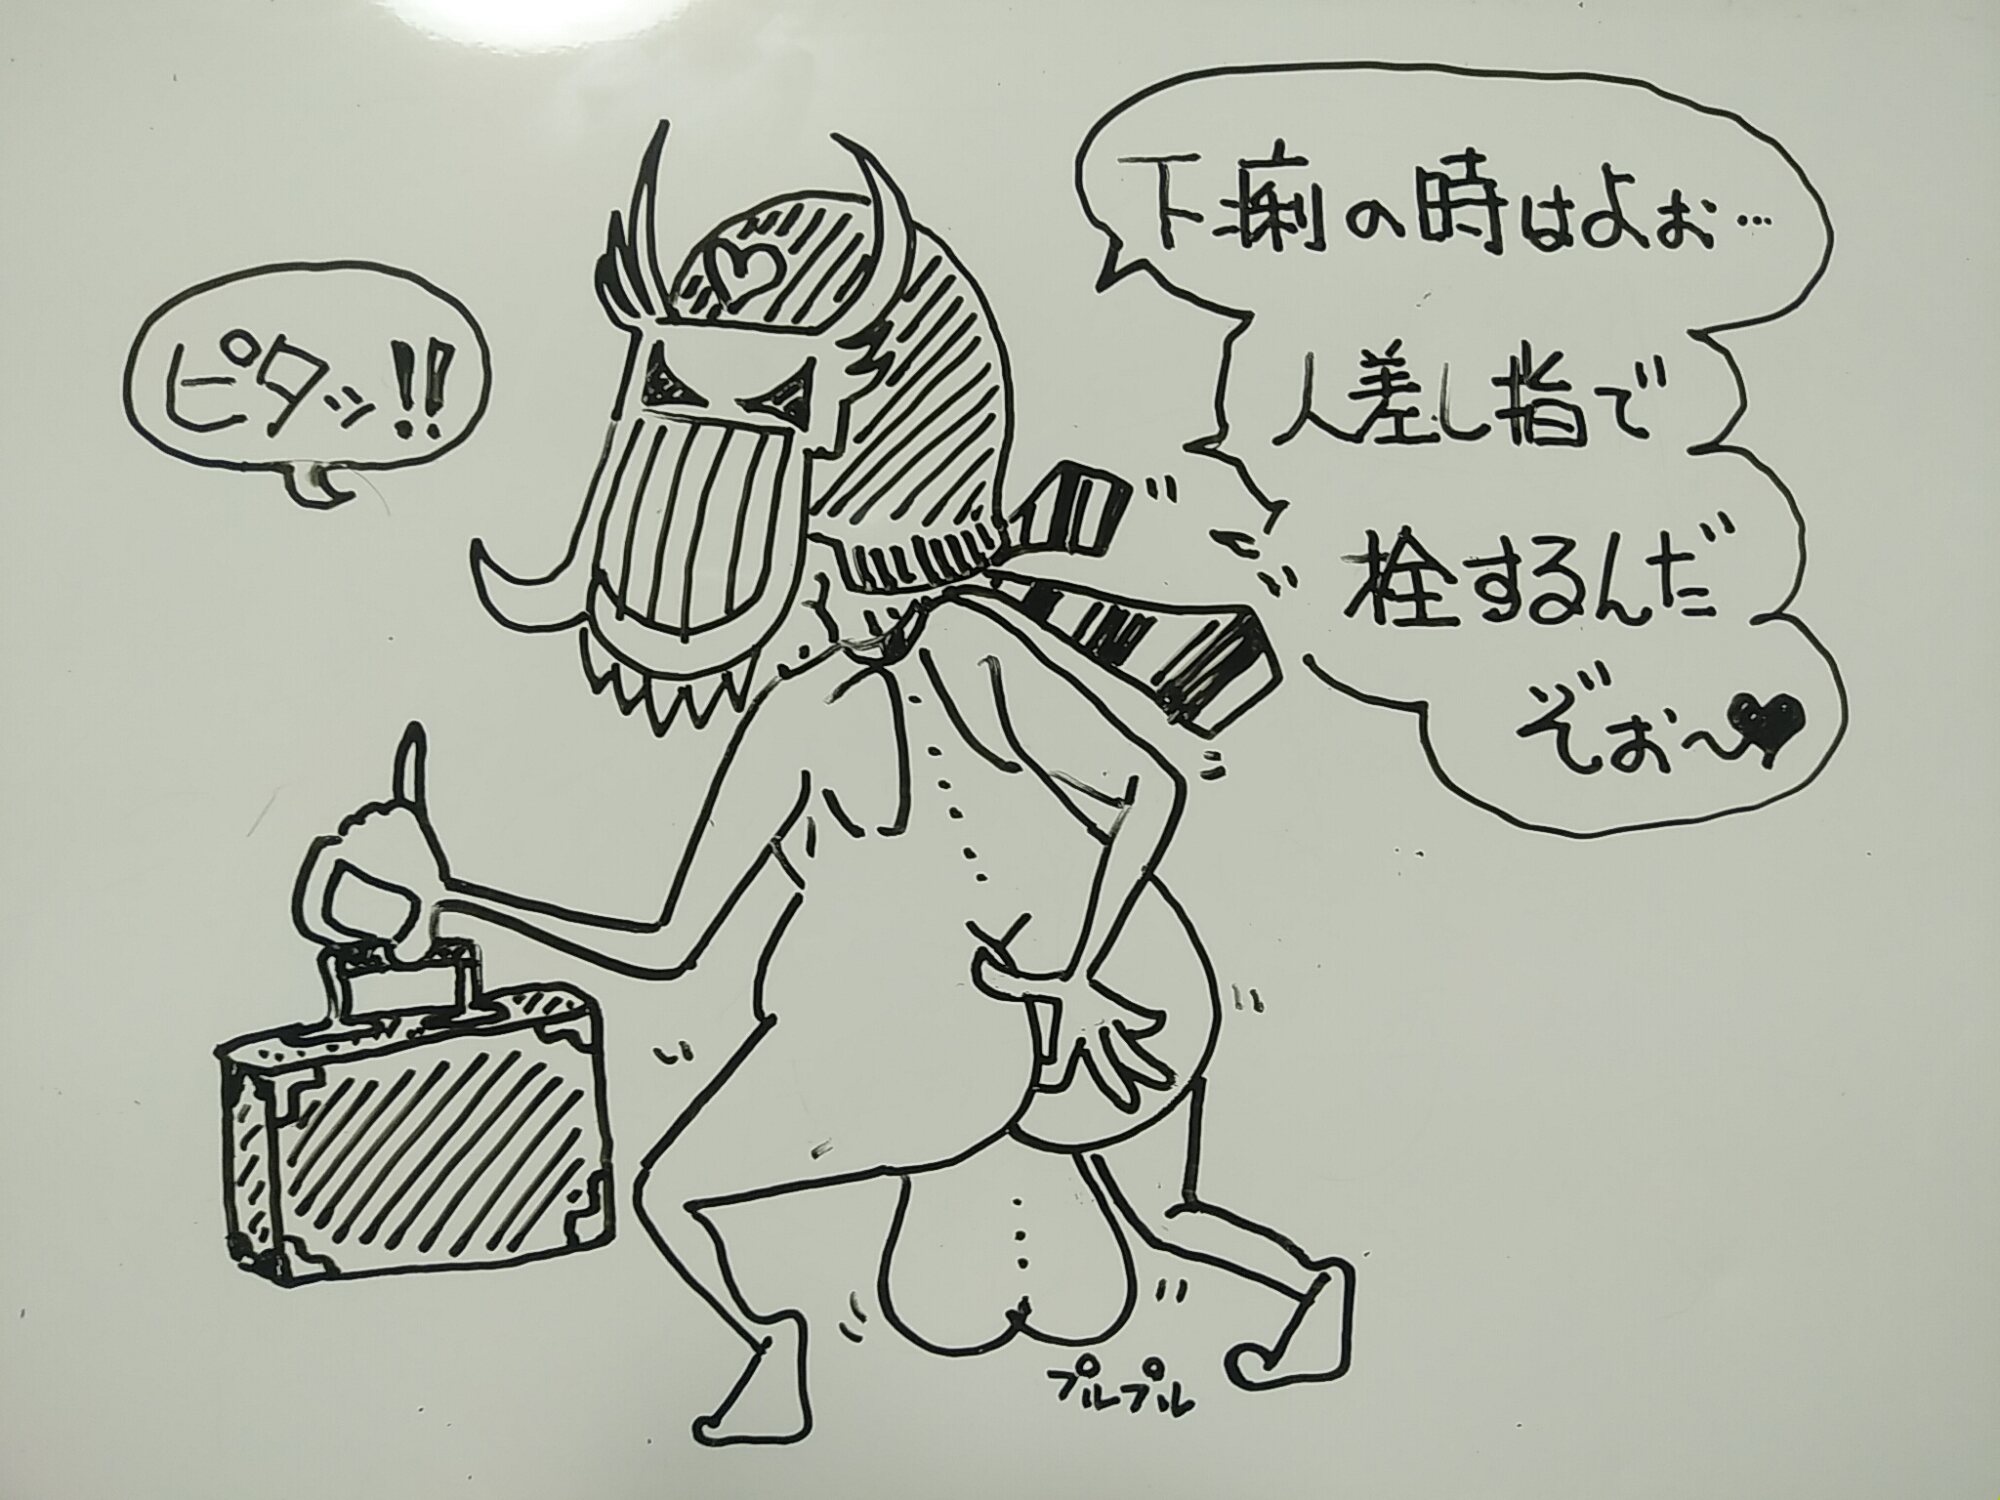 下痢の時はよぉ…
人差し指で
栓するんだ
ぞぉ～♥
ピタッ!!
プルプル